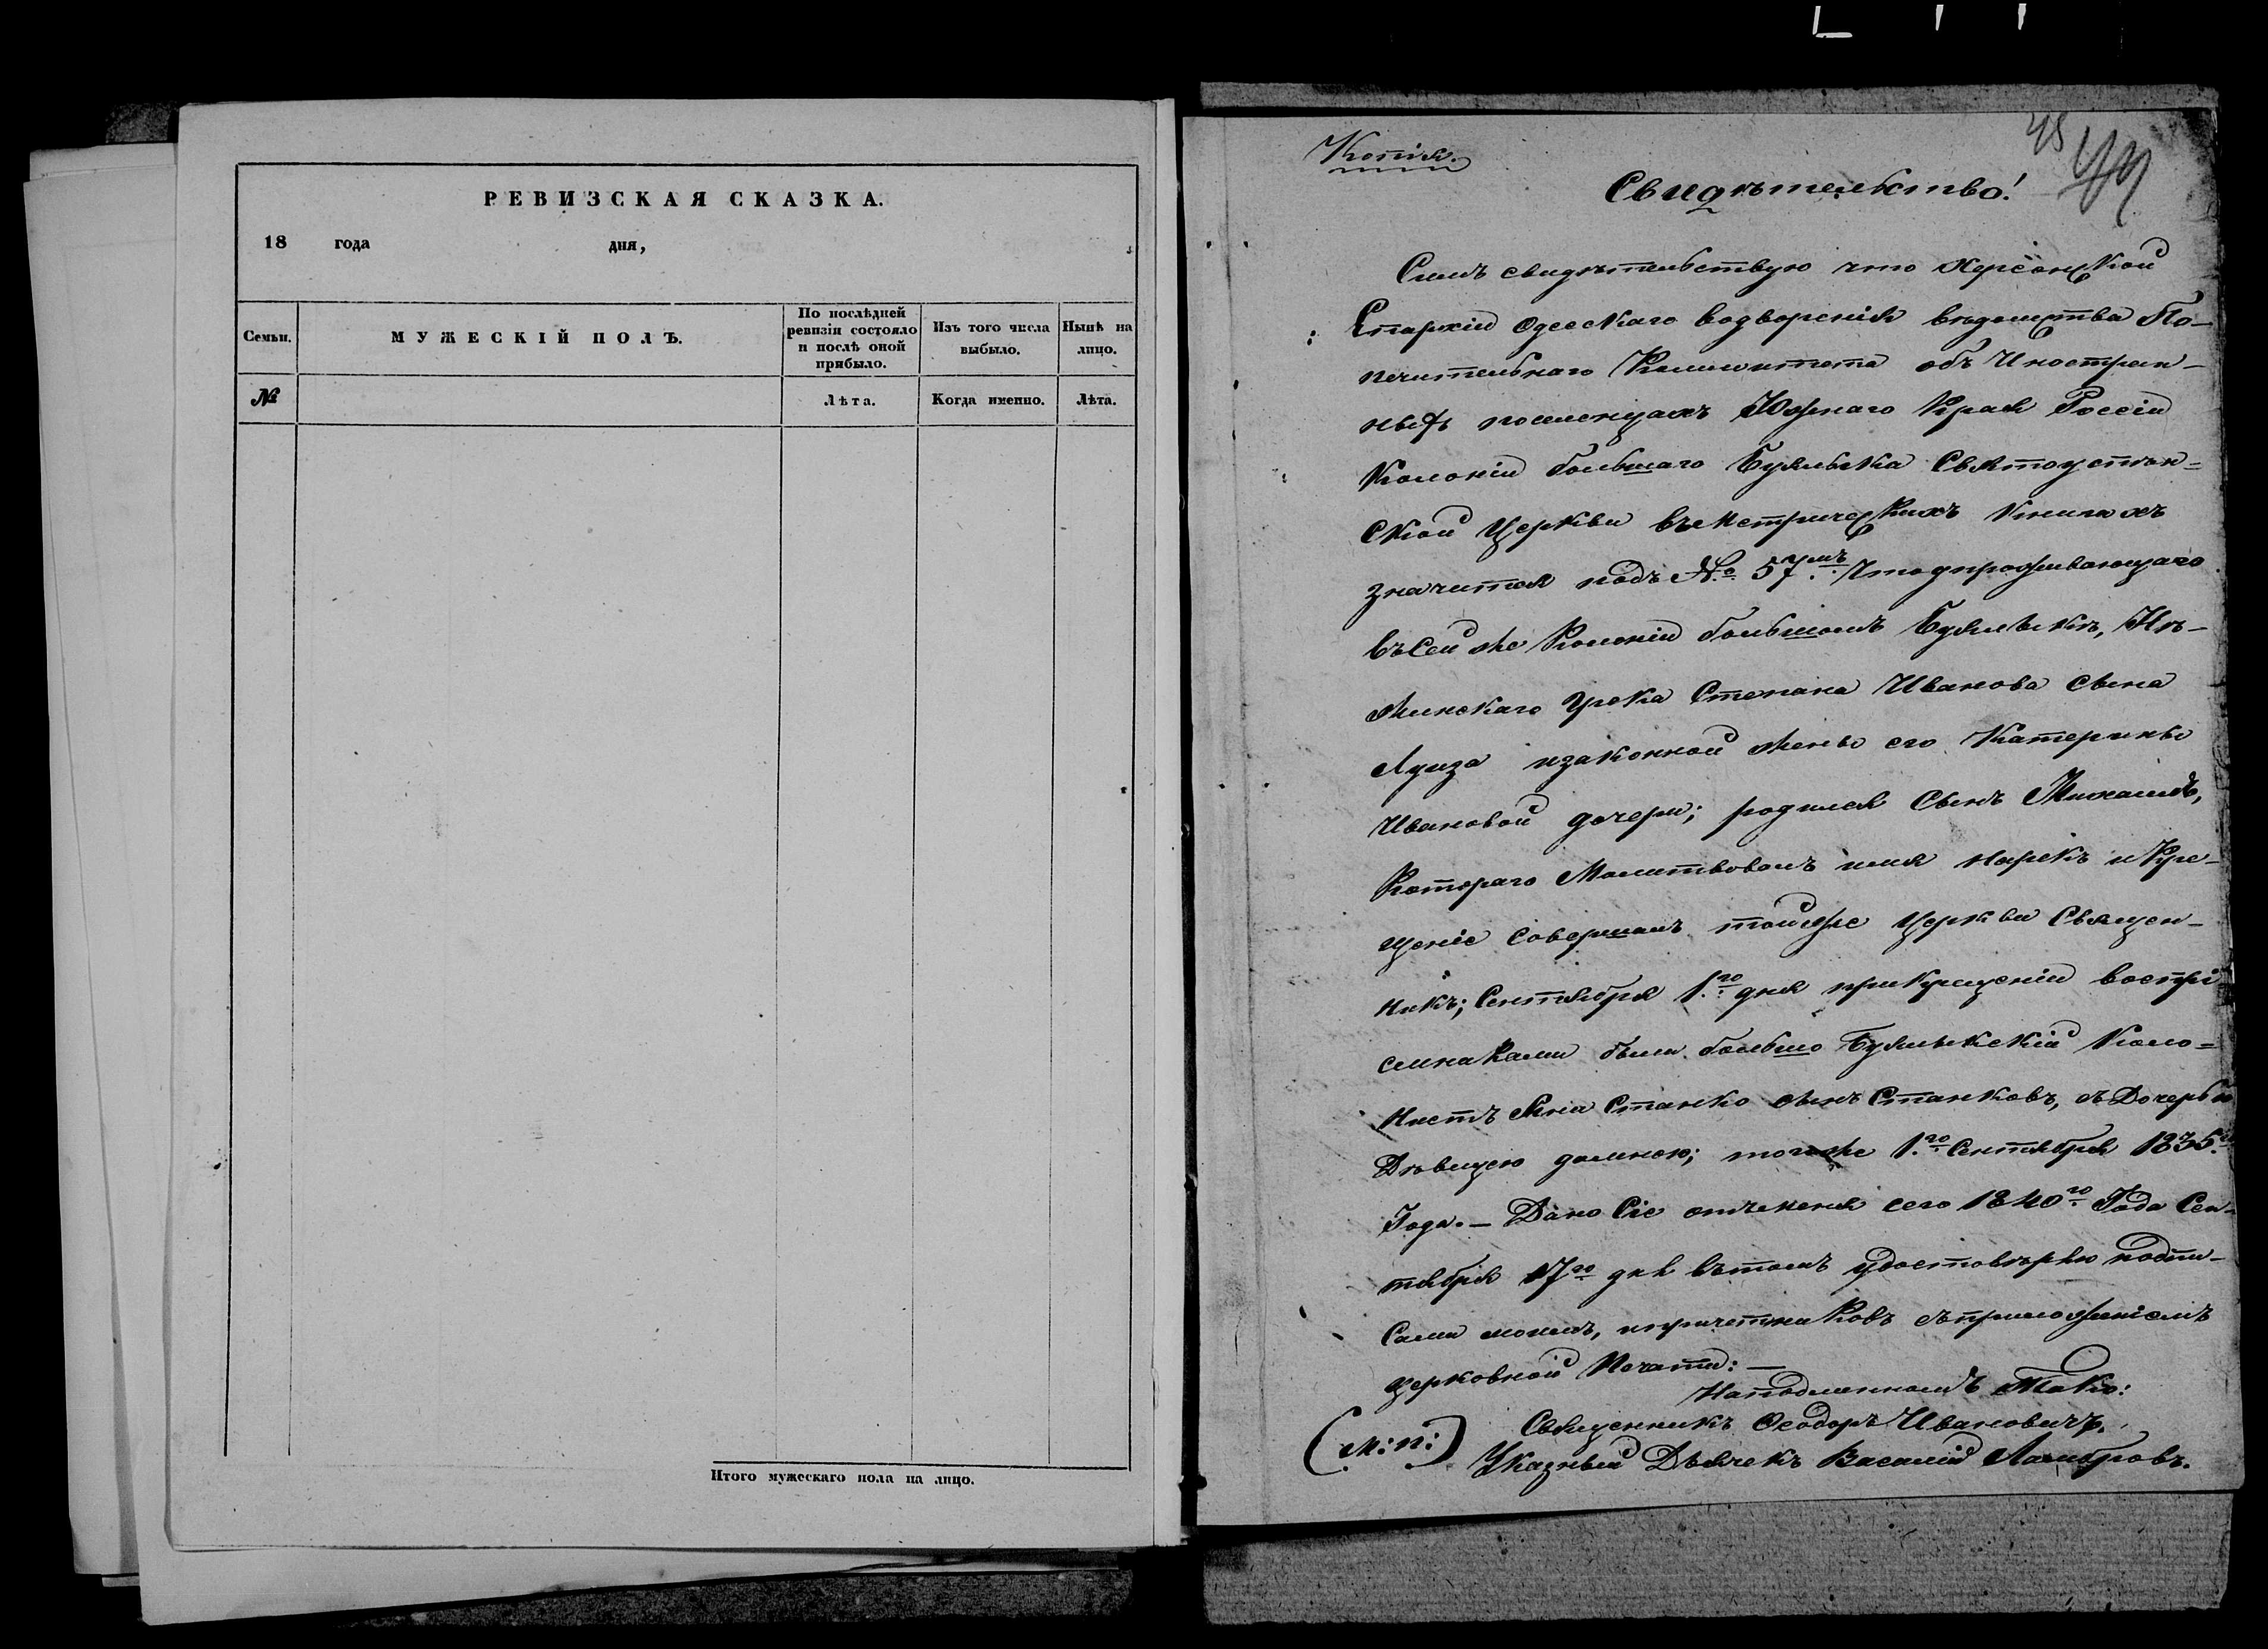 РЕВИЗСКАЯ СКАЗКА.
18 года дня,
Семьи.
МУЖЕСКІЙ ПОЛЪ.
По послѣдней ревизіи состояло и послѣ оной прибыло.
Изъ того числа выбыло.
Нынѣ на лицо.
№
Лѣта.
Когда именно.
Лѣта.
Итого мужескаго пола на лицо.
Копія.
45
Свидѣтельство!
Симъ свидѣтельствую что Херсонской
Епархіи Одесскаго водворенія вѣдомства По-
печительнаго Комитета объ Иностран-
ныхъ поселенцахъ Южнаго Края Россіи
Колоніи большаго Буялыка Святоуспен=
ской Церкви въ метрическихъ книгахъ
значится подъ № 57умъ: Что у проживающаго
въ сей же Колоніи большомъ Буялыкѣ, Нѣ-
жинскаго Грека Степана Иванова сына
изаконной жены его Катерины
Ивановой дочери; родился Сынъ Михаилъ,
Котораго Молитвовалъ имя нарекъ и Кре-
щеніе совершалъ тойже Церкви Священ-
никъ; Сентября 1го дня прикрещеніи воспрі
емниками были большо Буялыкскій Коло=
нистъ Яни Станко сынъ Станковъ, съ Дочерью
Дѣвицею домною; тогоже 1го Сентября 1835го
Года. — Дано Сіе отъ меня сего 1840го Года Сен-
тября 17го дня вътомъ удостовѣряю подпи-
сами моимъ, и причетниковъ съприложеніемъ
церковной Печати: —
Наподлинномъ Тако:
(М:П:) Священникъ Ѳеодоръ Ивановичъ.
Указный Дьячекъ Василій Ламбровъ.